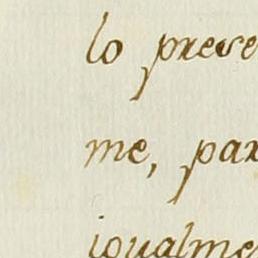 lo prese
me, par
igualme